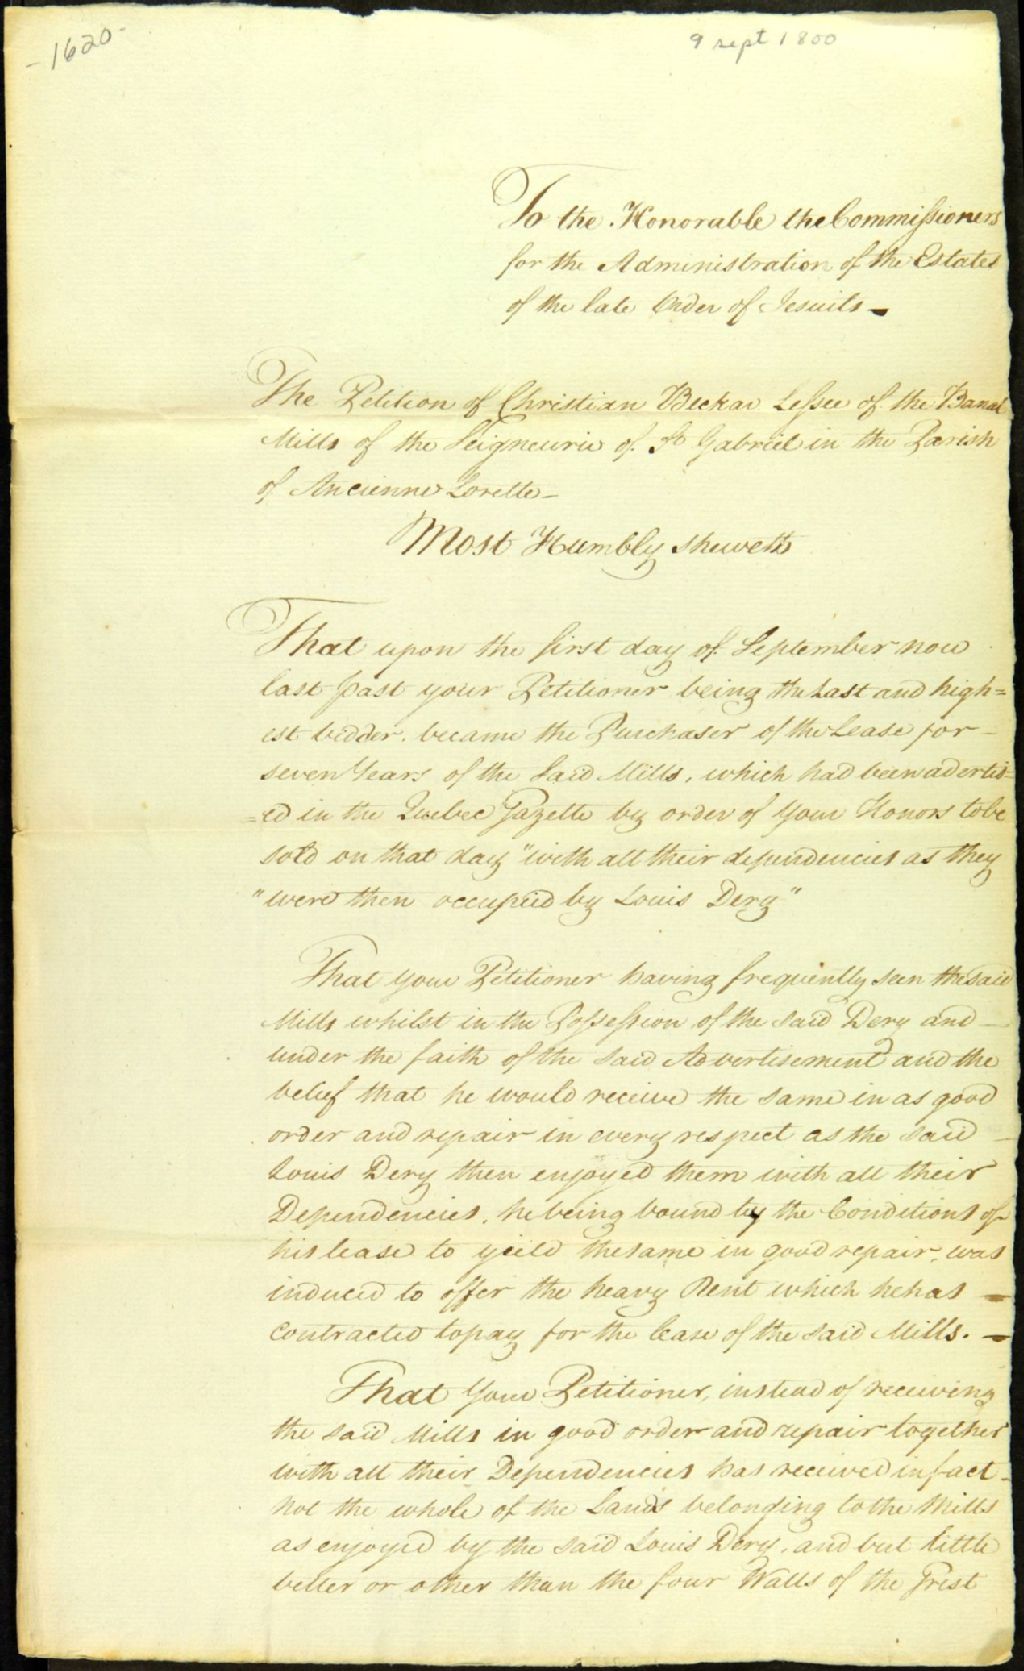 -1620-
9 sept 1800
To the Honorable the Commissioners
for the Administration of the Estates
of the late Order of Jesuits -
The Petition of Christian Lessee of the Banal
Mills of the Seigneurie of St Gabriel in the Parish
of Ancienne Lorette -
Most Humbly sheweth
That upon the first day of September now
last past your Petitioner being the Last and high=
est bidder. became the Purchaser of the Lease for -
seven Years of the Said Mills, which had been adertis=
=ed in the Quebec Gazette by order of Your Honors to be
sold on that day "with all their dependencies as they
"were then occupied by Louis Dery"
That Your Petitioner having frequently seen the said
Mills whilst in the Possession of the said Dery and -
under the faith of the said Advertisement and the
belief that he would receive the same in as good
order and repair in every respect as the said -
Louis Dery then enjoyed them with all their
Dependencies, he being bound by the Conditions of
his lease to yield the same in good repair, was
induced to offer the heavy Rent which he has -
contracted to pay for the lease of the said Mills. -
That Your Petitioner, instead of receiving
the said Mills in good order and repair together
with all their Dependencies has received in fact -
not the whole of the Lands belonging to the Mills
as enjoyed by the said Louis Dery, and but little
better or other than the four Walls of the Grist